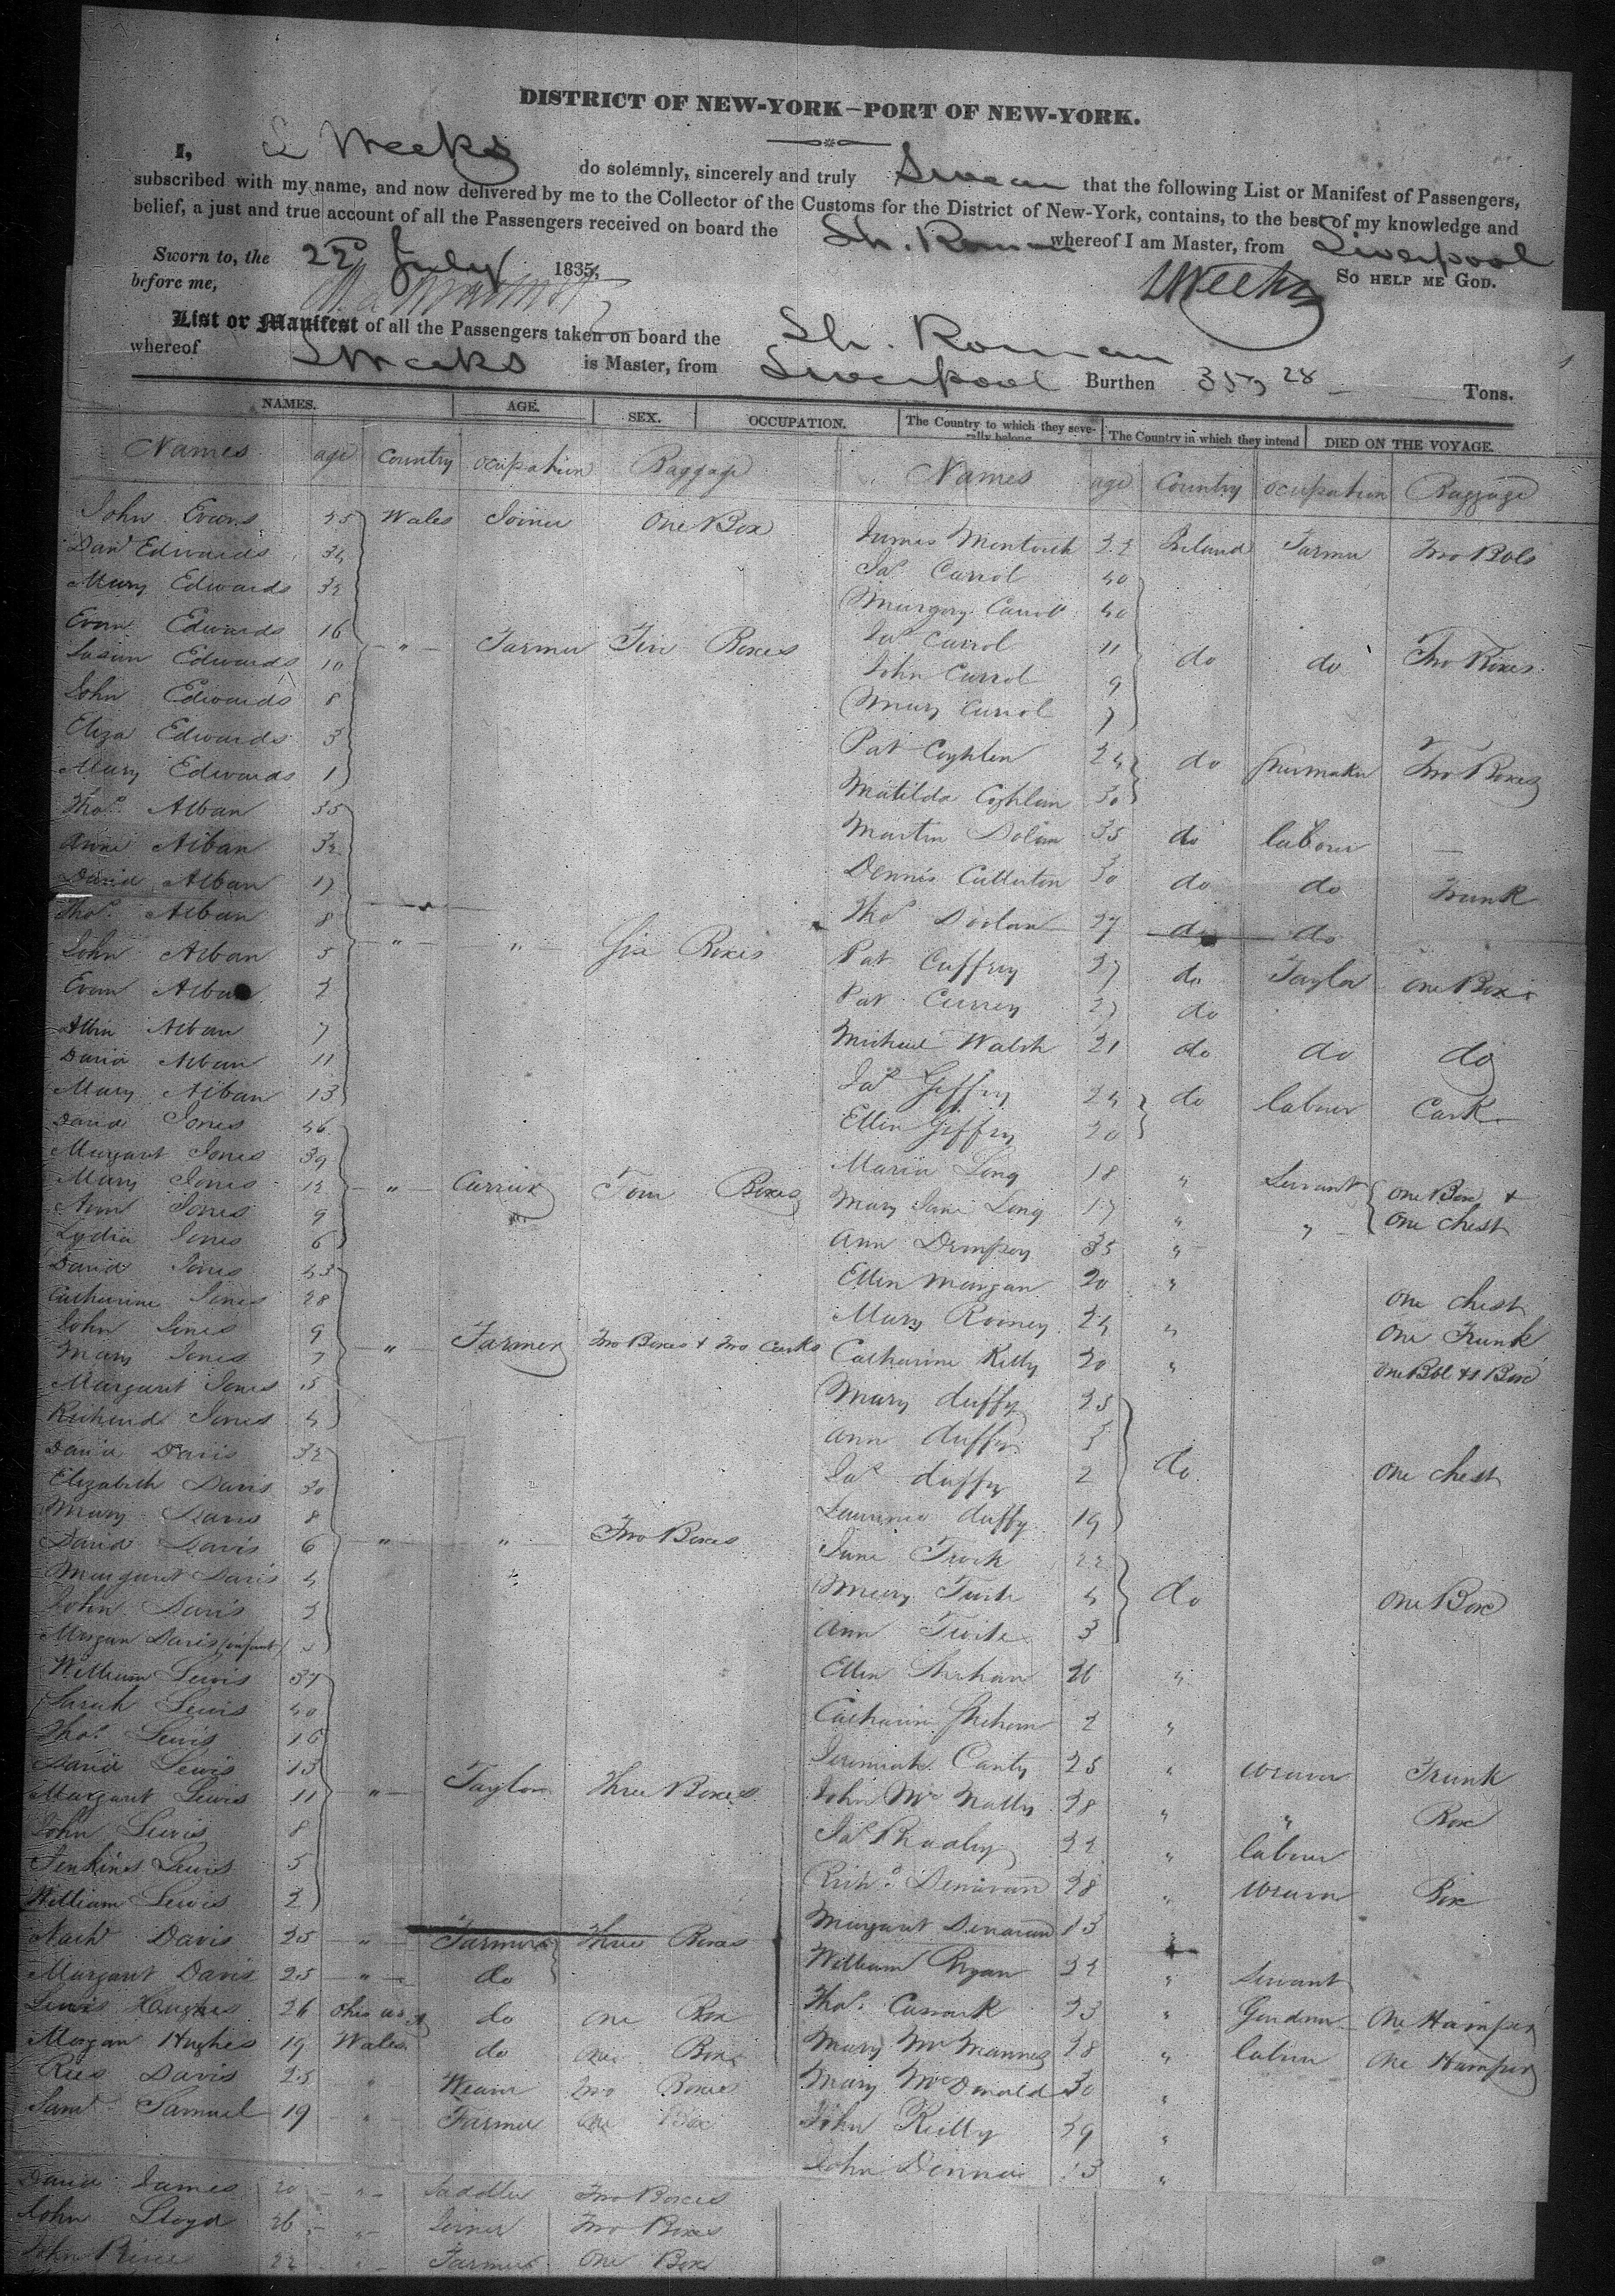 DISTRICT OF NEW-YORK—PORT OF NEW-YORK.
I, S Weeks do solemnly, sincerely and truly Swear that the following List or Manifest of Passengers,
subscribed with my name, and now delivered by me to the Collector of the Customs for the District of New-York, contains, to the best of my knowledge and
belief, a just and true account of all the Passengers received on board the Sh. Roman whereof I am Master, from Liverpool
Sworn to, the 22d July 1835, SO HELP ME GOD.
before me, SWeeks
List or Manifest of all the Passengers taken on board the Sh. Roman
whereof S Weeks is Master, from Liverpool Burthen Tons.
NAMES. AGE. SEX. OCCUPATION. The Country to which they seve-rally belong The Country in which they intend DIED ON THE VOYAGE.
Names age Country ocupation Baggage
John Evans 45 Wales Joiner One Box
Davd Edwards 34
Mary Edwards 32
Evan Edwards 16 " Farmer Five Boxes
Susan Edwards 10
John Edwards 8
Eliza Edwards 3
Mary Edwards 1
Thos. Alban 35
Anne Alban 32
David Alban 17
Thos. Alban 8
John Alban 5 " " Six Boxes
Evan Alban 2
Alban 7
David Alban 11
Mary Alban 13
David Jones 46
Margaret Jones 39
Mary Jones 12 " Currier Four Boxes
Ann Jones 9
Lydia Jones 6
David Jones 43
Catharine Jones 28
John Jones 9
Mary Jones 7 " Farmer Two Boxes & Two Casks
Margaret Jones 5
Richard Jones 4
David Davis 32
Elizabeth Davis 30
Mary Davis 8
David Davis 6 " " Two Boxes
Margaret Davis 4
John Davis 2
Morgan Davis (infant)
William Lewis 37
Sarah Lewis 40
Thos. Lewis 16
David Lewis 13
Margaret Lewis 11 " Taylor Three Boxes
John Lewis 8
Jenkins Lewis 5
William Lewis 2
Nath Davis 25 " Farmer Three Boxes
Margaret Davis 25 " do
Lewis Hughes 26 do One Box
Morgan Hughes 19 Wales do One Box
Rees Davis 25 " Weaver Two Boxes
Saml. Samuel 19 " Farmer One Box
David James 20 " Saddler Two Boxes
John Lloyd 26 " Joiner Two Boxes
John 22 " Farmer One Box
Names age Country ocupation Baggage
James Mentorih 22 Ireland Farmer Two Bols
Jas. Carrol 40
Margery Carrol 40
Jas. Carrol 11 do do Two Boxes
John Carrol 9
Mary Carrol 7
Pat Coghlen 24 do Shumaker Two Boxes
Matilda Coghlan 30
Martin Dolan 35 do labour —
Dennis Culleton 30 do do Trunk
Thos. Doolan 27 do do
Pat Caffrey 27 do Taylor One Box
Pat Currey 27 do
Michael Walsh 21 do do do
Jas. Geffry 24 do labour Cask
Ellen Geffry 20
Maria Long 18 " Servant One Box &
Mary Jane Long 17 " " One Chest
Ann Dempsey 35 "
Ellen Mangan 20 " One Chest
Mary Rooney 24 " One Trunk
Catharine Kelly 20 " One Bbl & 1 Box
Mary duffy 25
Ann duffy 3
Jas. duffy 2 do One Chest
Laurence duffy 19
Jane 22
Mary 4 do One Box
Ann 3
Ellen Shehan 26 "
Catharine Shehan 2 "
Jeremiah Canty 25 " Weaver Trunk
John McNally 28 " " Box
Jas. Bradley 22 " labour
Richd. Denavan 28 " Weaver Box
Margaret Denavan 13 "
William Ryan 22 " Servant
Thos. Cusack 23 " Gardner One Hamper
Mary McMannes 28 " labour One Hamper
Mary McDonald 30 "
John Reilly 29 "
John 13 "